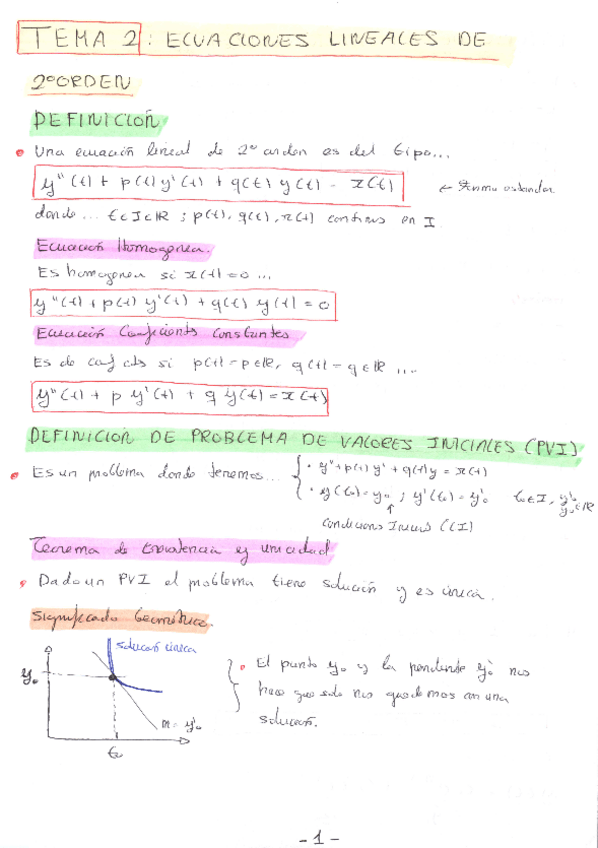 TEMA 2: ECUACIONES LINEALES DE
2º ORDEN
DEFINICIÓN
• Una ecuación lineal de 2º orden es del tipo...
y''(t) + p(t) y'(t) + q(t) y(t) = r(t) ← Forma estandar
donde ... t ∈ I ⊂ ℝ ; p(t), q(t), r(t) continuas en I
Ecuación Homogenea.
Es homogenea si r(t) = 0 ...
y''(t) + p(t) y'(t) + q(t) y(t) = 0
Ecuación Coeficientes Constantes
Es de coef cts si p(t) = p ∈ ℝ, q(t) = q ∈ ℝ ...
y''(t) + p y'(t) + q y(t) = r(t)
DEFINICIÓN DE PROBLEMA DE VALORES INICIALES (PVI)
• Es un problema donde tenemos... { • y'' + p(t) y' + q(t) y = r(t)
• y(t₀) = y₀ ; y'(t₀) = y'₀ t₀ ∈ I, y₀, y'₀ ∈ ℝ
↑
Condiciones Iniciales (CI)
Teorema de Existencia y unicidad
• Dado un PVI el problema tiene solución y es única.
Significado Geométrico.
solución única
y₀
m = y'₀
t₀
} • El punto y₀ y la pendiente y'₀ nos
hace que solo nos quedemos con una
solución.
- 1 -